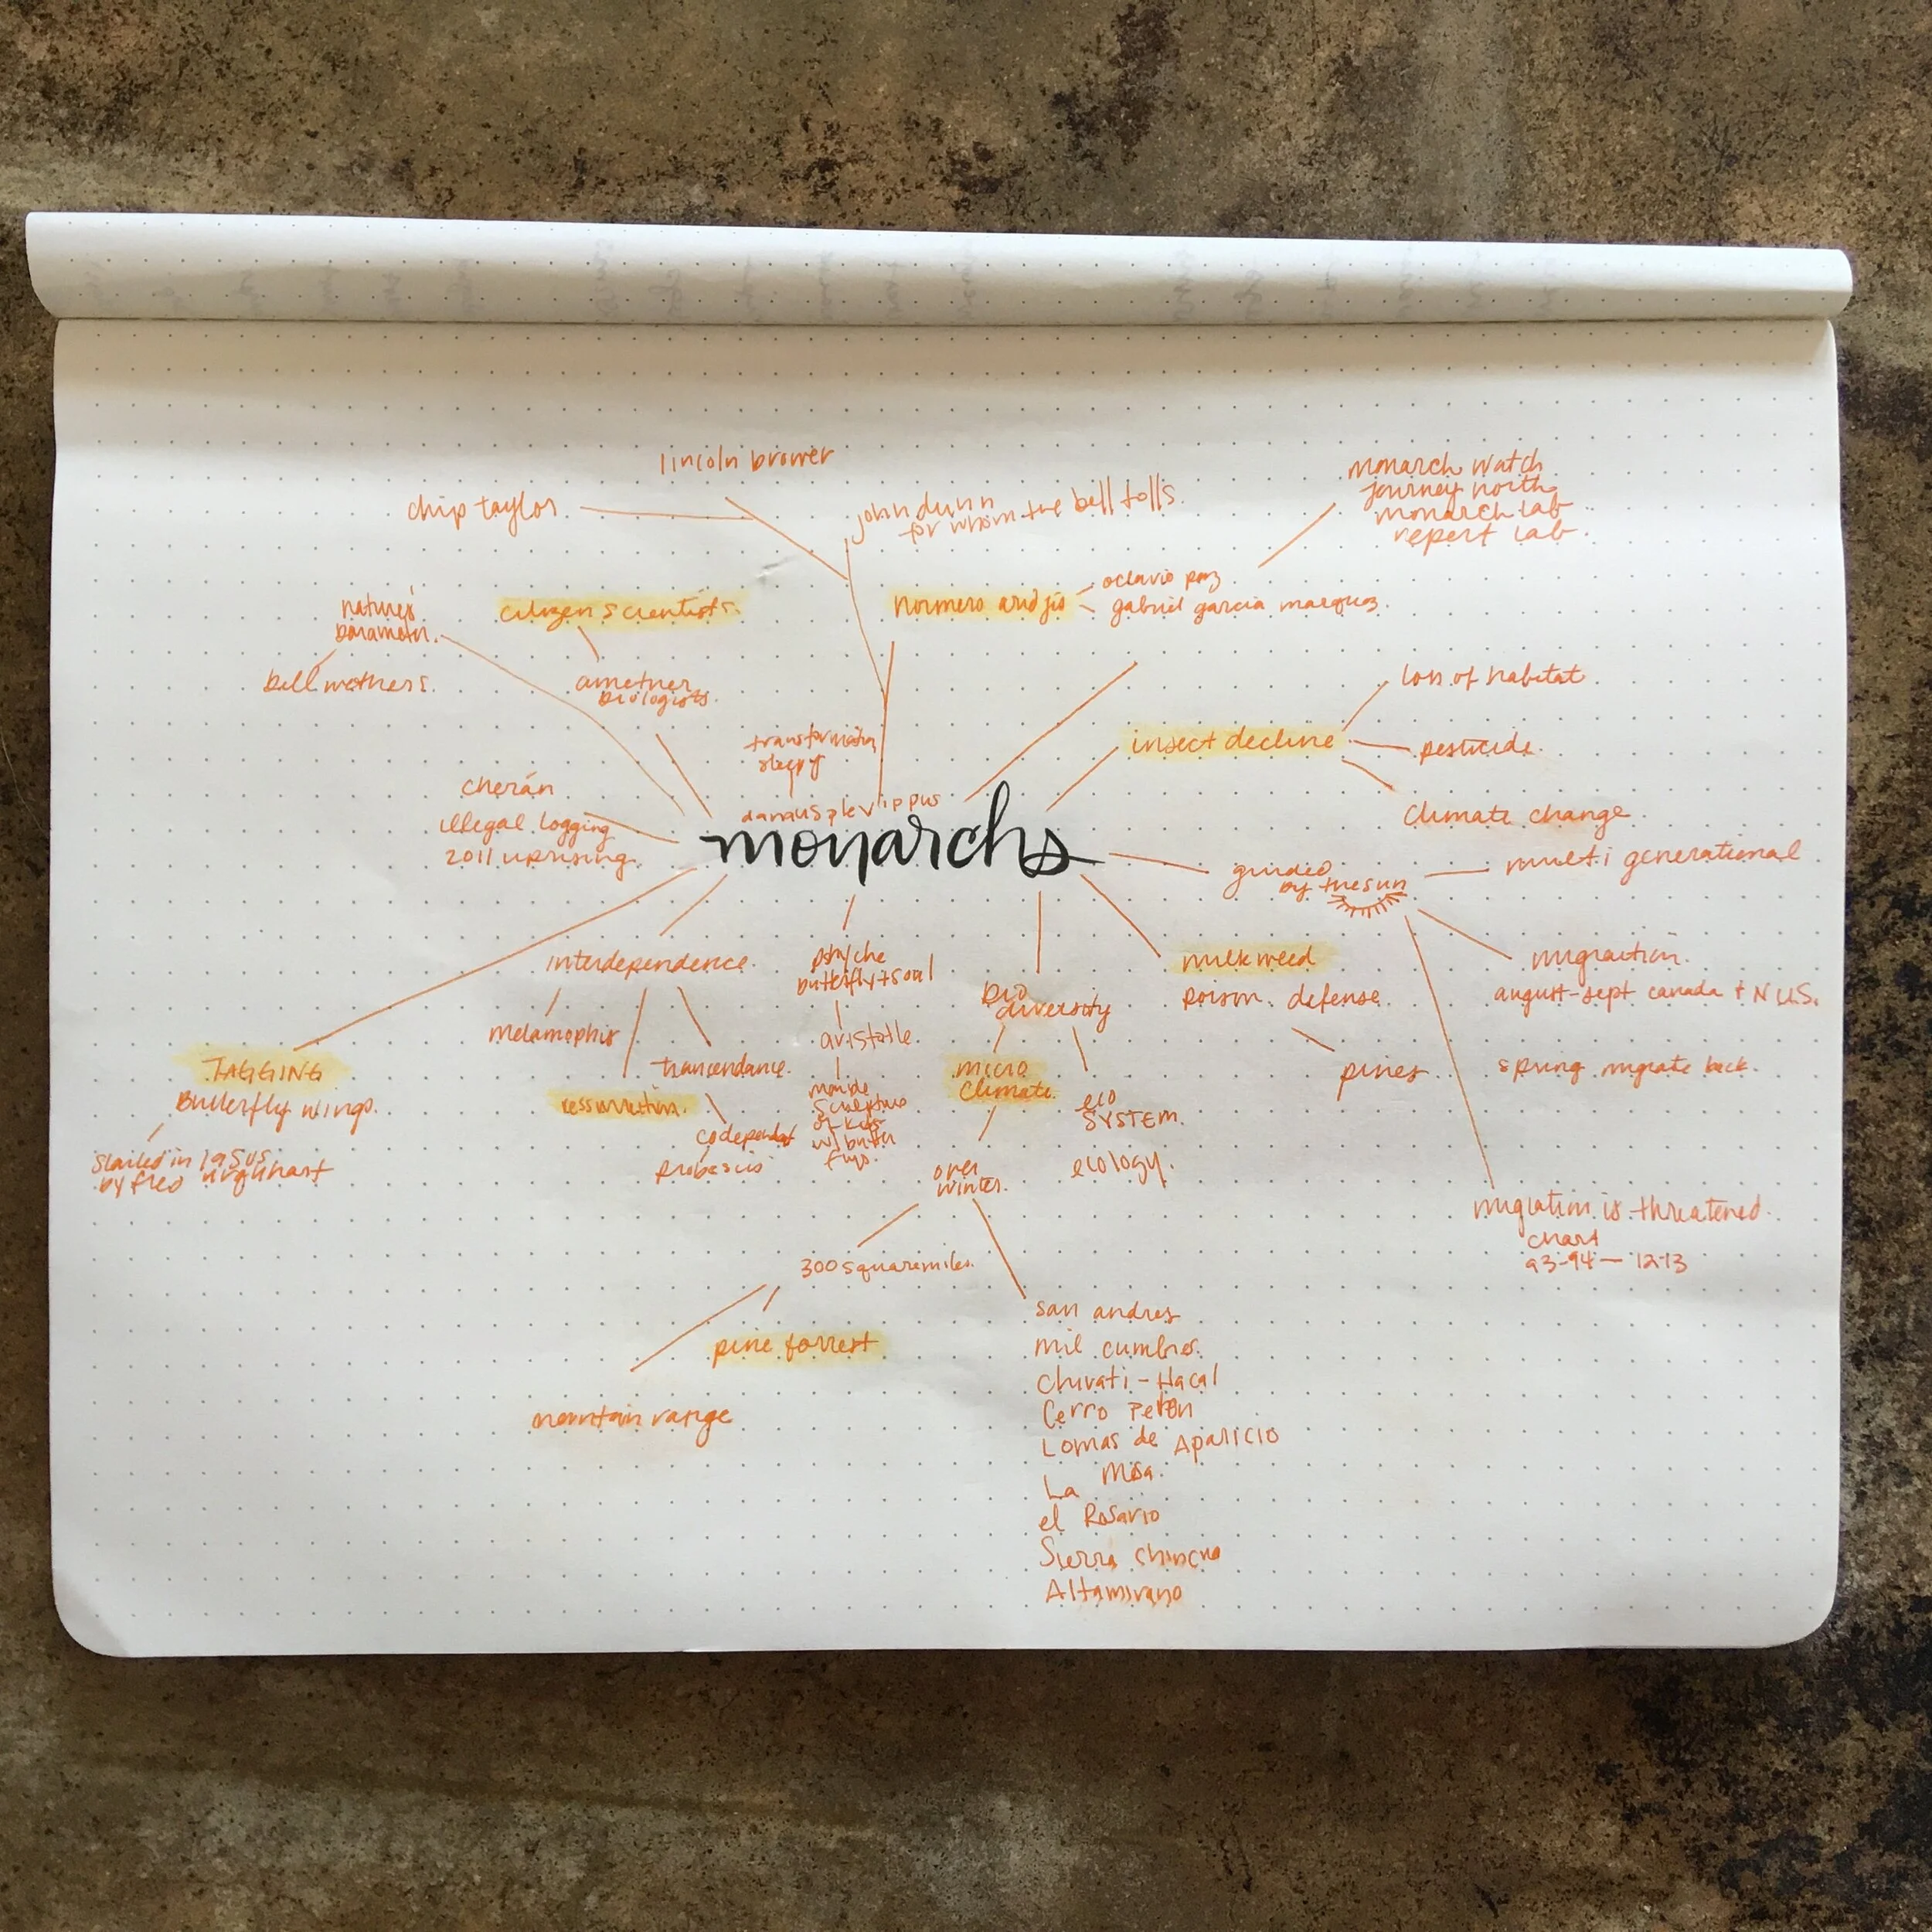 lincoln brower
chip taylor
john dunn
for whom the bell tolls
monarch watch
journey north
monarch lab
repert lab
citizen scientists
ametuer
biologists
nature's
barameter
bell wethers
hormero aridjis
octavio paz
gabriel garcia marquez
loss of habitat
insect decline
pesticide
climate change
transformation
danaus plexippus
monarchs
cherán
illegal logging
2011 uprising
guided
by the sun
multi generational
migration
august-sept canada + N U.S.
spring migrate back
migration is threatened
chart
93-94 — 12-13
milkweed
poison defense
pines
bio
diversity
micro
climate
eco
SYSTEM
ecology
over
winter
300 square miles
pine forrest
mountain range
san andres
mil cumbres
Chivati - Hacal
Cerro Pelon
Lomas de Aparicio
La Mesa
el Rosario
Sierra Chincua
Altamirano
psyche
butterfly + soul
aristotle
sculpture
of kids
w/ butter
flys
interdependence
melamophis
ressurection
trancendance
codependent
probascis
TAGGING
Butterfly wings
started in 1950s
by fred urquhart